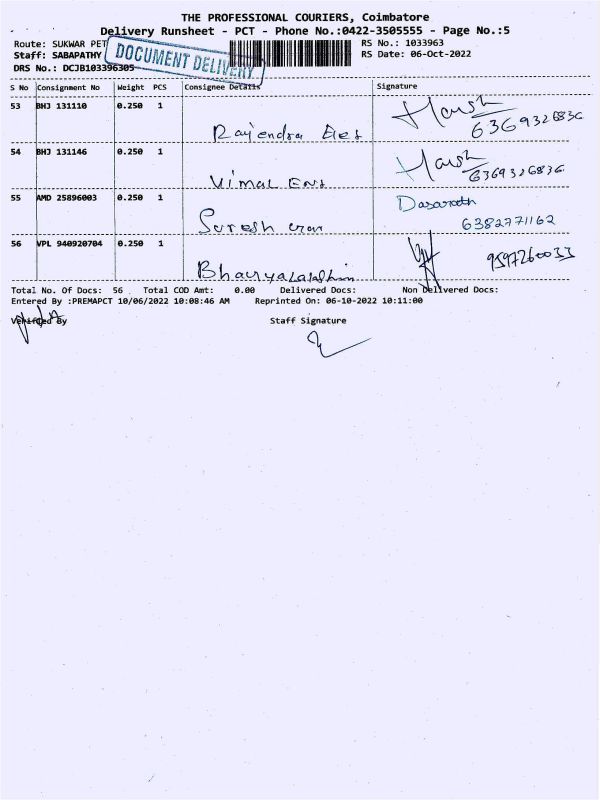 THE PROFESSIONAL COURIERS, Coimbatore
Delivery Runsheet - PCT - Phone No.:0422-3505555 - Page No.:5
Route: SUKWAR PET
RS No.: 1033963
Staff: SABAPATHY
RS Date: 06-Oct-2022
DRS No.: DCJB103396305
DOCUMENT DELIVERY
S No Consignment No Weight PCS Consignee Details Signature
53 BHJ 131110 0.250 1
Rajendra Harsh
6369326836
54 BHJ 131146 0.250 1
Vimal Ent Harsh
6369326836
55 AMD 25896003 0.250 1 Dasarath
Suresh 6382771162
56 VPL 940920704 0.250 1
9597260033
Total No. Of Docs: 56 Total COD Amt: 0.00 Delivered Docs: Non Delivered Docs:
Entered By :PREMAPCT 10/06/2022 10:08:46 AM Reprinted On: 06-10-2022 10:11:00
Verified By Staff Signature